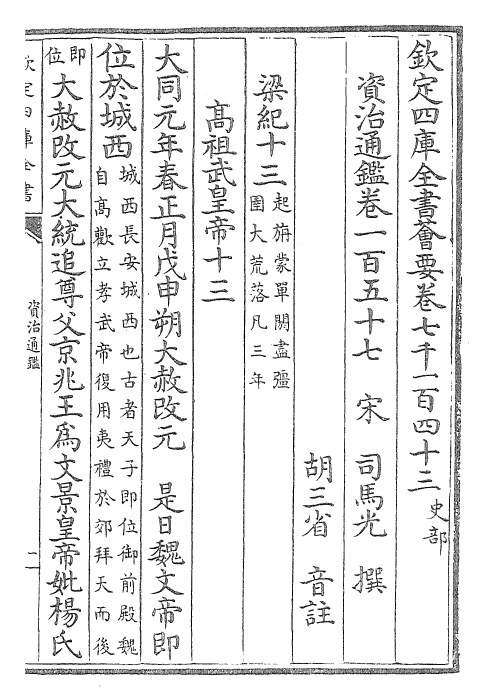 欽定四庫全書薈要卷七千一百四十三 史部
資治通鑑卷一百五十七 宋 司馬光 撰
胡三省 音註
梁紀十三 起旃蒙單閼盡彊
圉大荒落凡三年
高祖武皇帝十三
大同元年春正月戊申朔大赦改元 是日魏文帝即
位於城西 城西長安城西也古者天子即位御前殿魏
自高歡立孝武帝復用夷禮於郊拜天而後
即位 大赦改元大統追尊父京兆王為文景皇帝妣楊氏
欽定四庫全書
資治通鑑
一